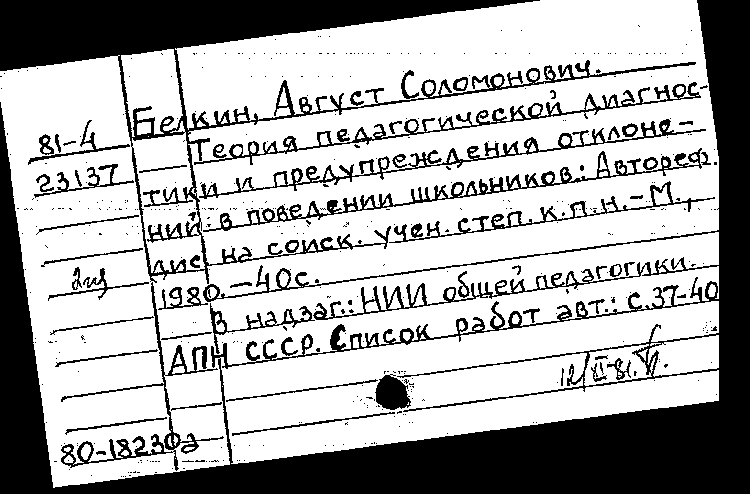 Белкин, Август Соломонович.
81-4
23137
Теория педагогической диагнос-
тики и предупреждения отклоне-
ний в поведении школьников.: Автореф.
дис на соиск. учен. степ. к.п.н. - М.,
1980. - 40с.
2из
В надзаг.: НИИ общей педагогики
АПН СССР. Список работ авт.: с.37-40
12/II-81.
80-18230а